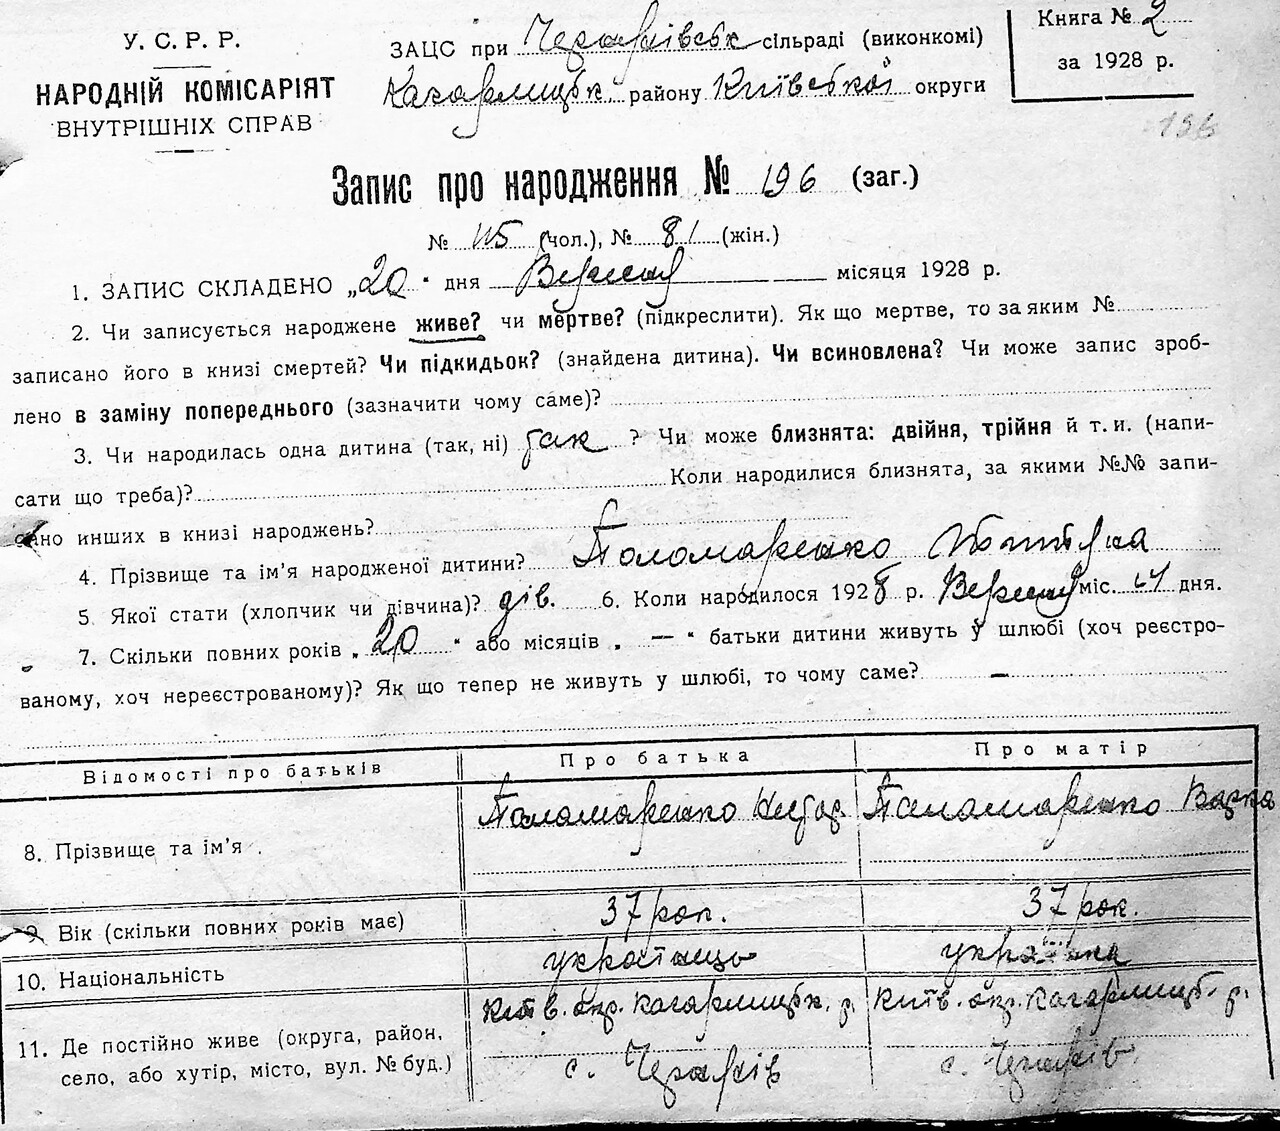 У. С. Р. Р.
НАРОДНІЙ КОМІСАРІЯТ
ВНУТРІШНІХ СПРАВ
ЗАЦС при сільраді (виконкомі)
Кагарлицьк. району Київської округи
Книга № 2
за 1928 р.
196
Запис про народження № 196 (заг.)
№ 115 (чол.), № 81 (жін.)
1. ЗАПИС СКЛАДЕНО „20 “ дня Вересня місяця 1928 р.
2. Чи записується народжене живе? чи мертве? (підкреслити). Як що мертве, то за яким №
записано його в книзі смертей? Чи підкидьок? (знайдена дитина). Чи всиновлена? Чи може запис зроб-
лено в заміну попереднього (зазначити чому саме)?
3. Чи народилась одна дитина (так, ні) так ? Чи може близнята: двійня, трійня й т. и. (напи-
сати що треба)? Коли народилися близнята, за якими №№ запи-
сано инших в книзі народжень?
4. Прізвище та ім’я народженої дитини? Поломаренко
5. Якої стати (хлопчик чи дівчина)? дів. 6. Коли народилося 1928 р. Вересня міс. дня.
7. Скільки повних років „ 20 “ або місяців „ — “ батьки дитини живуть у шлюбі (хоч реєстро-
ваному, хоч нереєстрованому)? Як що тепер не живуть у шлюбі, то чому саме? —
Відомості про батьків Про батька Про матір
8. Прізвище та ім’я Паламаренко Паламаренко
9. Вік (скільки повних років має) 37 рок. 37 рок.
10. Національність українець українка
11. Де постійно живе (округа, район, Київ. окр. Кагарлицьк. р. Київ. окр. Кагарлицьк. р.
село, або хутір, місто, вул. № буд.) с. с.